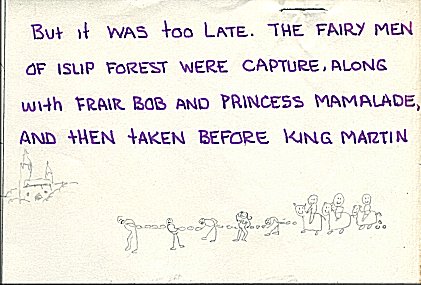 But it was too late. The fairy men
of Islip Forest were capture, along
with Frair Bob and Princess Mamalade,
and then taken before King Martin